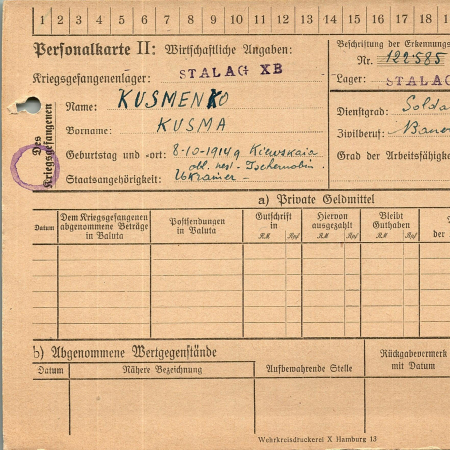 1 2 3 4 5 6 7 8 9 10 11 12 13 14 15 16 17 18
Personalkarte II: Wirtschaftliche Angaben:
Beschriftung der Erkennungs
Nr. 122585
Kriegsgefangenenlager: STALAG XB
Lager: STALAG
Des Kriegsgefangenen
Name: KUSMENKO
Dienstgrad: Solda
Vorname: KUSMA
Zivilberuf: Bauer
Geburtstag und -ort: 8-10-1914 g Kiewskaia
obl. Tschernobin
Grad der Arbeitsfähigke
Staatsangehörigkeit: Ukrainer -
a) Private Geldmittel
Datum
Dem Kriegsgefangenen abgenommene Beträge in Valuta
Postsendungen in Valuta
Gutschrift in
RM Rpf
Hiervon ausgezahlt
RM Rpf
Bleibt Guthaben
RM Rpf
der
b) Abgenommene Wertgegenstände
Rückgabevermerk mit Datum
Datum
Nähere Bezeichnung
Aufbewahrende Stelle
Wehrkreisdruckerei X Hamburg 13